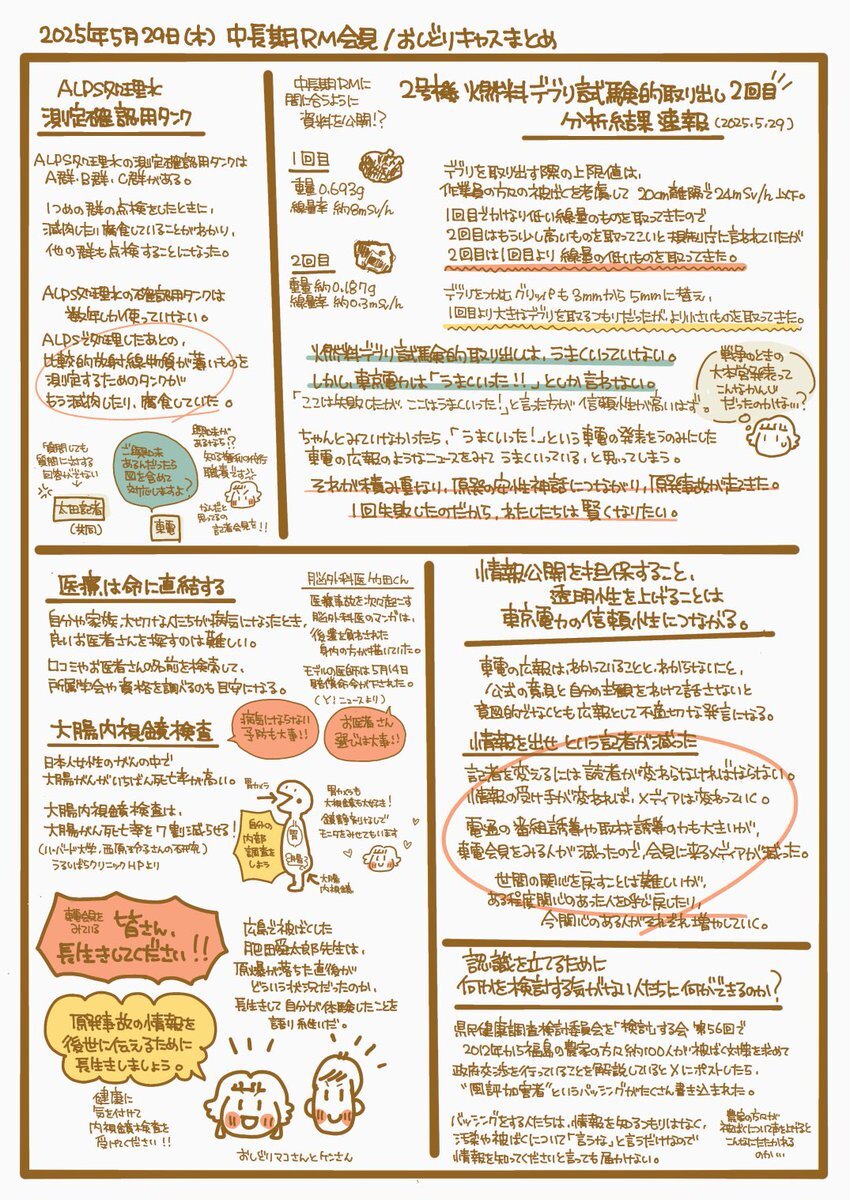 2025年5月29日(木) 中長期RM会見/おしどりキャスまとめ
ALPS処理水
測定確認用タンク
ALPS処理水の測定確認用タンクは
A群・B群・C群がある。
1つめの群の点検をしたときに、
減肉したり腐食していることがわかり、
他の群も点検することになった。
ALPS処理水の確認用タンクは
数年しか使っていない。
ALPSで処理したあとの、
比較的放射線物質が薄いものを
測定するためのタンクが
もう減肉したり、腐食していた。
「質問しても
質問に対する
回答がさない」
太田記者
(共同)
ご興味
あるんだったら
図を含めて
対応しますよ?
東電
興味が
あるけなら!?
知る権利の代行
職業です
なんだと
思ってるの
記者会見を!!
中長期RMに
間に合うように
資料を公開!?
2号機 燃料デブリ試験的取り出し2回目
分析結果 速報(2025.5.29)
1回目
重量0.693g
線量率 約8mSv/h
2回目
重量 約0.187g
線量率 約0.3mSv/h
デブリを取り出す際の上限値は、
作業員の方々の被ばくを考慮して 20cm離隔で24mSv/h以下。
1回目でかなり低い線量のものを取ってきたので
2回目はもう少し高いものを取ってこいと規制庁に言われていたが
2回目は1回目より線量の低いものを取ってきた。
デブリをつかむグリッパも3mmから5mmに替え、
1回目より大きなデブリを取るつもりだったが、より小さいものを取ってきた。
燃料デブリ試験的取り出しは、うまくいっていない。
しかし、東京電力は「うまくいった!!」としか言わない。
「ここは失敗したが、ここはうまくいった!」と言った方が信頼性が高いはず。
戦争のときの
大本営発表って
こんなかんじ
だったのかな…?
ちゃんとみていけなかったら、「うまくいった!」という東電の発表をうのみにした
東電の広報のようなニュースをみて うまくいっている、と思ってしまう。
それが積み重なり、原発の安全神話につながり、原発事故が起きた。
1回失敗したのだから、わたしたちは 賢くなりたい。
医療は命に直結する
自分や家族、大切な人たちが病気になったとき、
良いお医者さんを探すのは難しい。
口コミやお医者さんの名前を検索して、
所属学会や資格を調べるのも目安になる。
脳外科医 竹田くん
医療事故を次々起こす
脳外科医のマンガは、
後遺を負わされた
身内の方が描いていた。
モデルの医師は5月14日
賠償命令が下された。
(Y!ニュースより)
病気にならない
予防も大事!!
お医者さん
選びは大事!!
大腸内視鏡検査
日本人女性のがんの中で
大腸がんがいちばん死亡率が高い。
大腸内視鏡検査は、
大腸がん死亡率を7割減らせる!
(ハーバード大学、西原玲子さんの研究)
うるしばらクリニックHPより
胃カメラ
自分の
内部
調査を
しよう
胃
大腸
大腸
内視鏡
胃カメラも
大視鏡も大好き!
鎮静剤なしで
モニタをみせてもいます
東電会見を
みている
皆さん、
長生きしてください!!
原発事故の情報を
後世に伝えるために
長生きしましょう。
健康に
気を付けて
内視鏡検査を
受けてください!!
広島で被ばくした
肥田舜太郎先生は、
原爆が落ちた直後が
どういう状況だったのか、
長生きして自分が体験したことを
語り継いだ。
おしどりマコさんとケンさん
情報公開を担保すること、
透明性を上げることは
東京電力の信頼性につながる。
東電の広報は、わかっていることと、わからないこと、
公式の意見と自分の主観をわけて話さないと
意図的でなくとも広報として不適切な発言になる。
情報を出せ という記者が減った
記者を変えるには読者が変わらなければならない。
情報の受け手が変われば、メディアは変わっていく。
電通の番組誘導や取材誘導の力も大きいが、
東電会見をみる人が減ったので、会見に来るメディアが減った。
世間の関心を戻すことは難しいが、
ある程度関心のあった人を呼び戻したり、
今関心のある人がそれぞれ増やしていく。
認識を立てるために
何かを検討する気がない人たちに何ができるのか?
県民健康調査検討委員会を「検討」する会 第56回で
2012年から福島の農家の方々約100人が被ばく対策を求めて
政府交渉を行っていることを解説しているとXにポストしたら、
"風評加害者"というバッシングがたくさん書き込まれた。
バッシングをする人たちは、情報を知るつもりはなく、
汚染や被ばくについて「言うな」と言うだけなので
情報を知ってくださいと言っても届かない。
農家の方々が
被ばくについて声を上げると
こんなにたたかれる
のか…